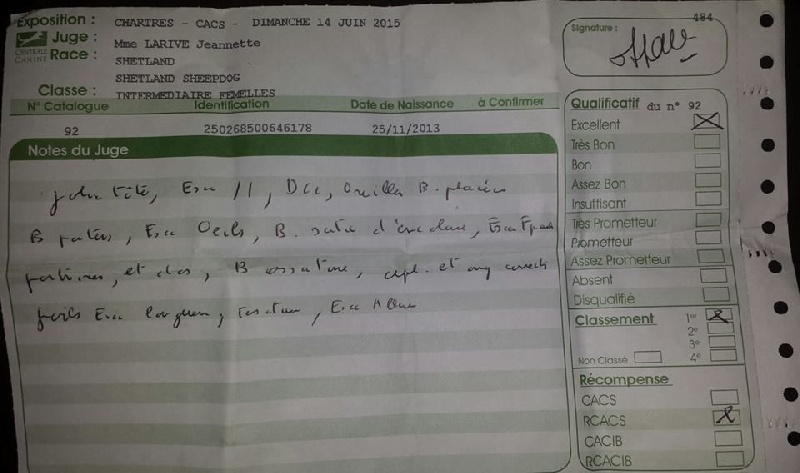 484
Exposition : CHARTRES - CACS - DIMANCHE 14 JUIN 2015
Juge : Mme LARIVE Jeannette
CENTRALE CANINE
Race : SHETLAND
SHETLAND SHEEPDOG
Classe : INTERMEDIAIRE FEMELLES
Signature :
N° Catalogue Identification Date de Naissance à Confirmer
92 250268500646178 25/11/2013
Notes du Juge
Jolie tête, Exc //, Dcc, Oreilles B. placées
B portées, Exc Oeils, B.
et dos, B ossature, et corrects
Exc texture, Exc Allure
Qualificatif du n° 92
Excellent
Très Bon
Bon
Assez Bon
Insuffisant
Très Prometteur
Prometteur
Assez Prometteur
Absent
Disqualifié
Classement 1er
2e
3e
Non Classé 4e
Récompense
CACS
RCACS
CACIB
RCACIB